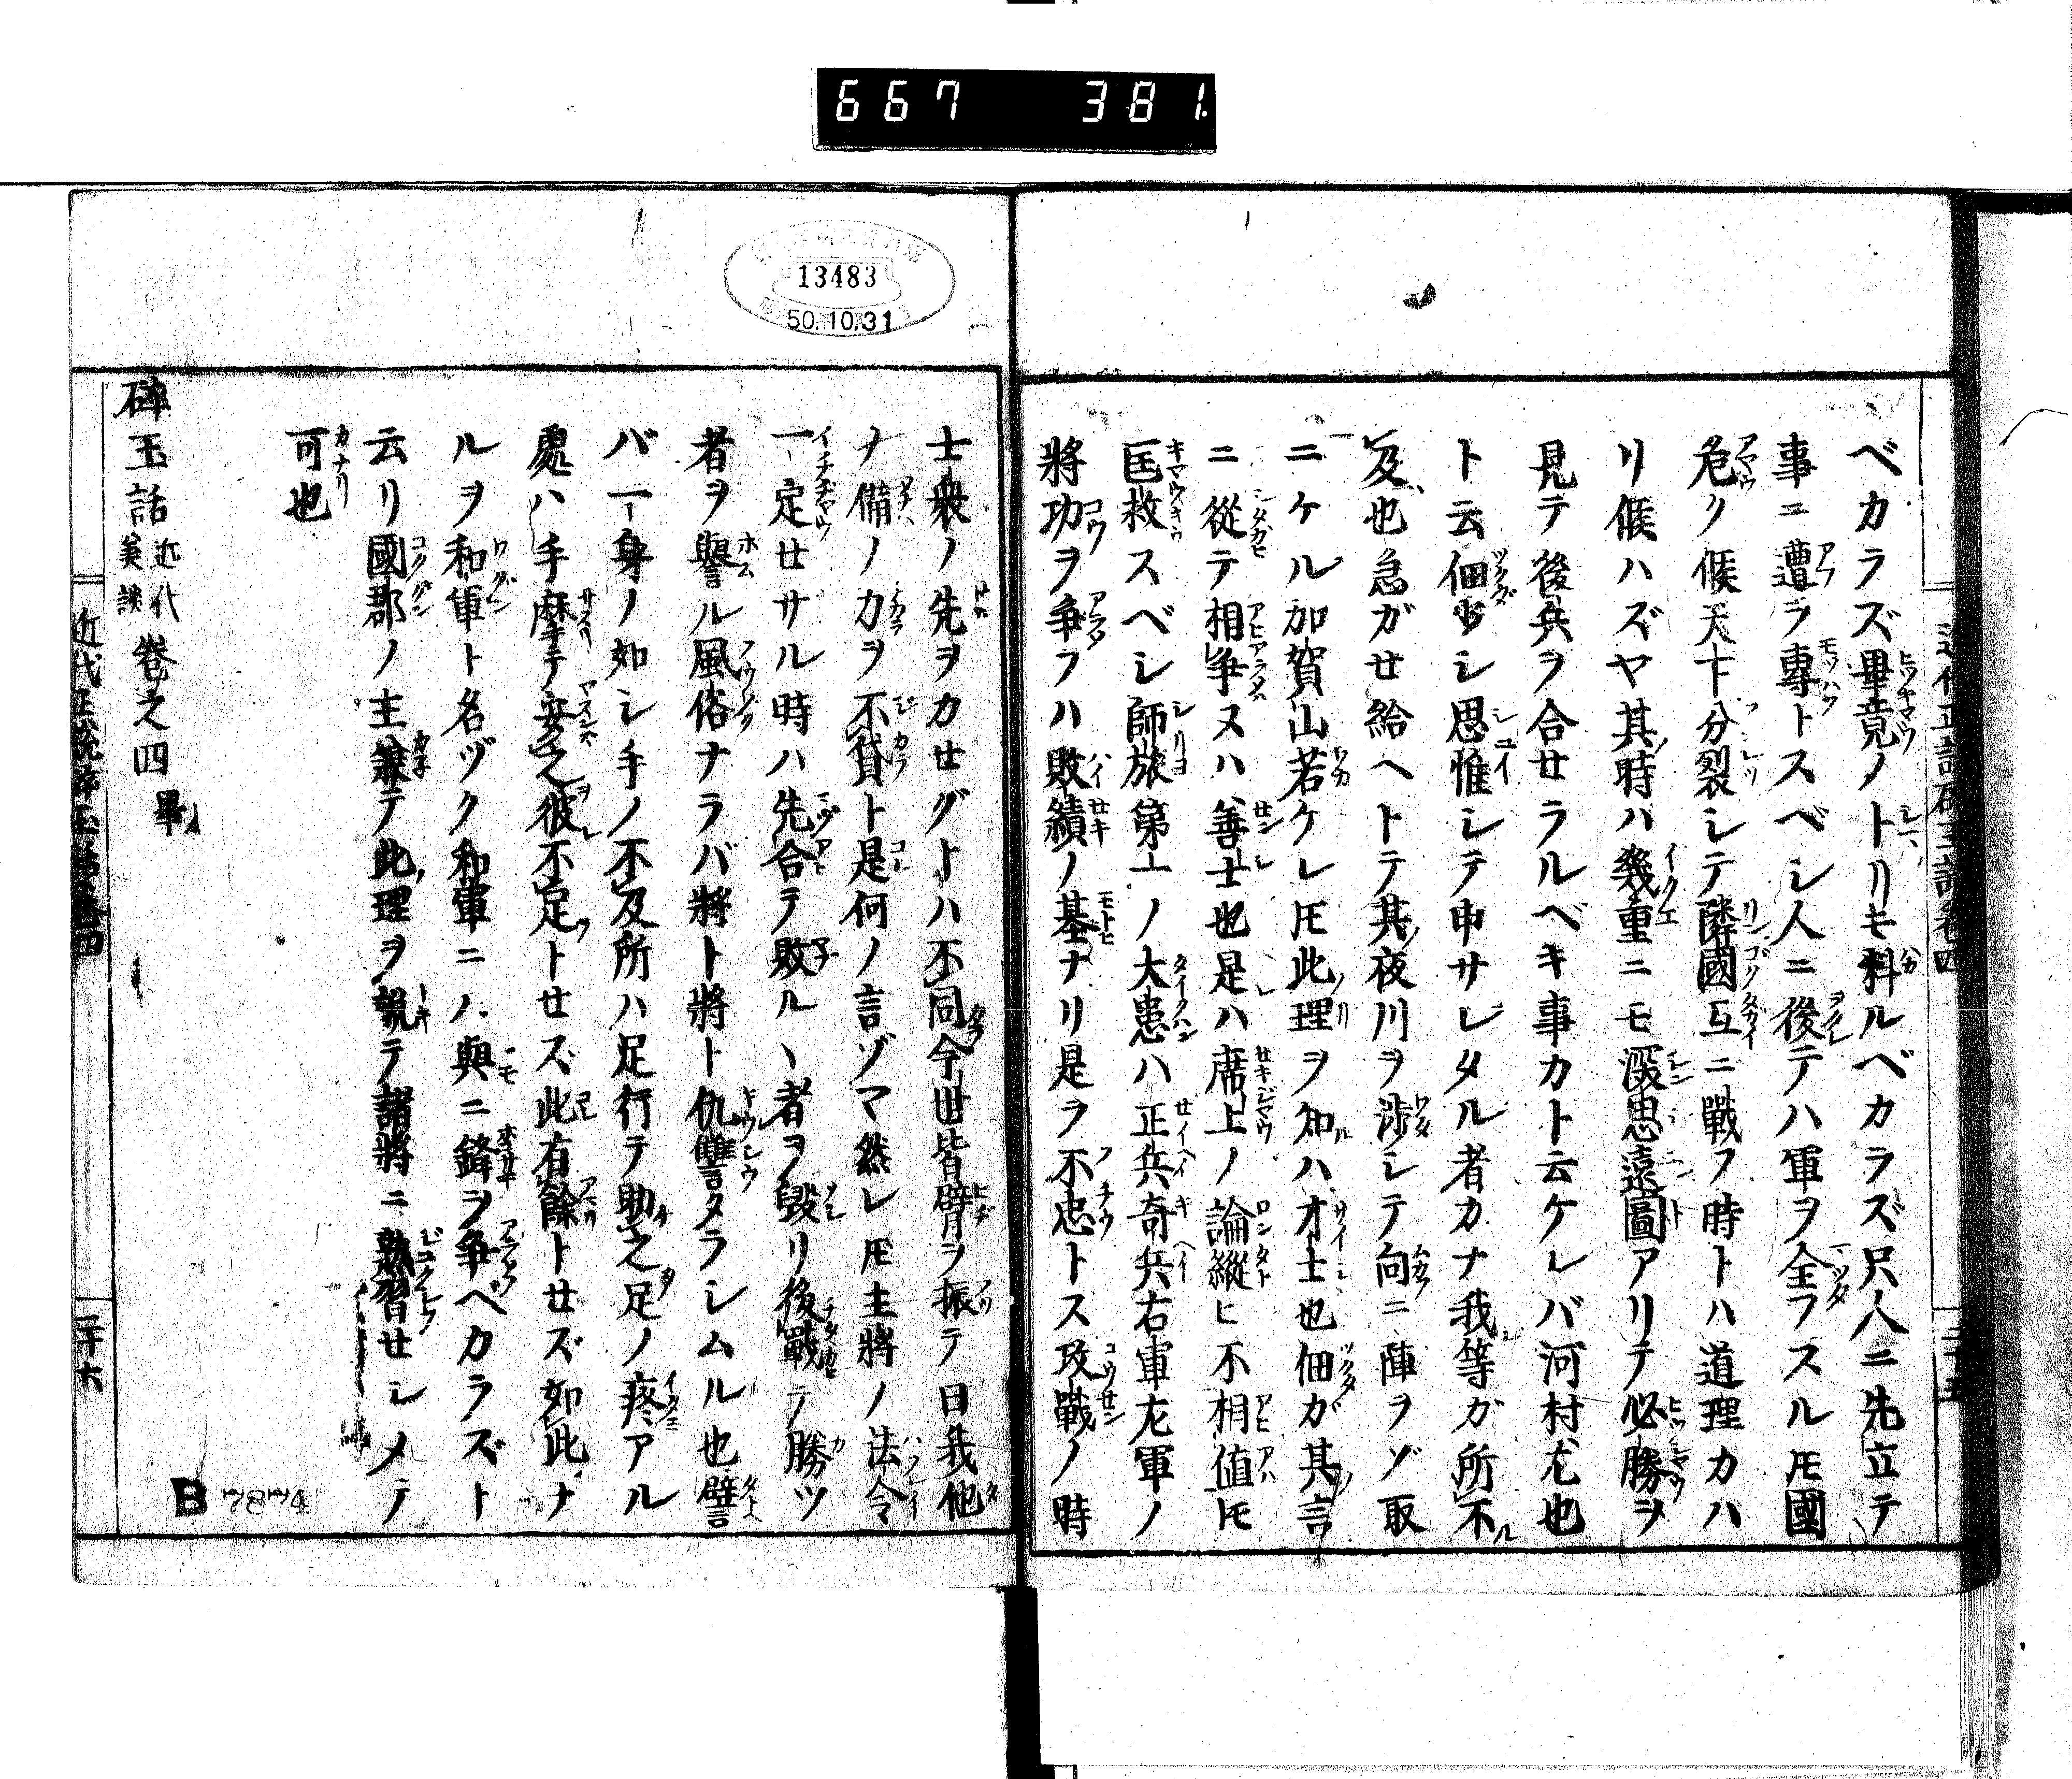 667 381
ベカラズ畢竟ノトリモ料ルベカラズ只人ニ先立テ
事ニ遭ヲ專トスベシ人ニ後テハ軍ヲ全フスルモ國
危ク候天下分裂シテ隣國互ニ戰フ時トハ道理カハ
リ候ハズヤ其時ハ幾重ニモ深思遠圖アリテ必勝ヲ
見テ後兵ヲ合セラルベキ事カト云ケレバ河村尤也
ト云佃少シ思惟シテ申サレタル者カナ我等ガ所不
及也急ガセ給ヘトテ其夜川ヲ渉シテ向ニ陣ヲゾ取
ニケル加賀山若ケレ𪜈此理ヲ知ハオ士也佃ガ其言
ニ從テ相爭ヌハ善士也是ハ席上ノ論縱ヒ不相値𪜈
匡救スベシ師旅第一ノ大患ハ正兵奇兵右軍左軍ノ
將功ヲ爭フハ敗績ノ基ナリ是ヲ不忠トス攻戰ノ時
13483
50.10.31
士衆ノ先ヲカセグトハ不同今世皆臂ヲ振テ曰我他
ノ備ノカヲ不貸ト是何ノ言ゾマ然レ𪜈主將ノ法令
一定セサル時ハ先合テ敗ルヽ者ヲ毀リ後戰テ勝ツ
者ヲ譽ル風俗ナラバ將ト將ト仇讐タラシムル也譬
バ一身ノ如シ手ノ不及所ハ足行テ助之足ノ疼アル
處ハ手摩テ安之彼不足トセズ此有餘トセズ如此ナ
ルヲ和軍ト名ヅク和軍ニハ與ニ鋒ヲ爭ベカラズト
云リ國郡ノ主兼テ此理ヲ説テ諸將ニ熟習セシメテ
可也
碎玉話 近代美談 卷之四 畢
近代正説碎玉話卷四
二十六
B 7874